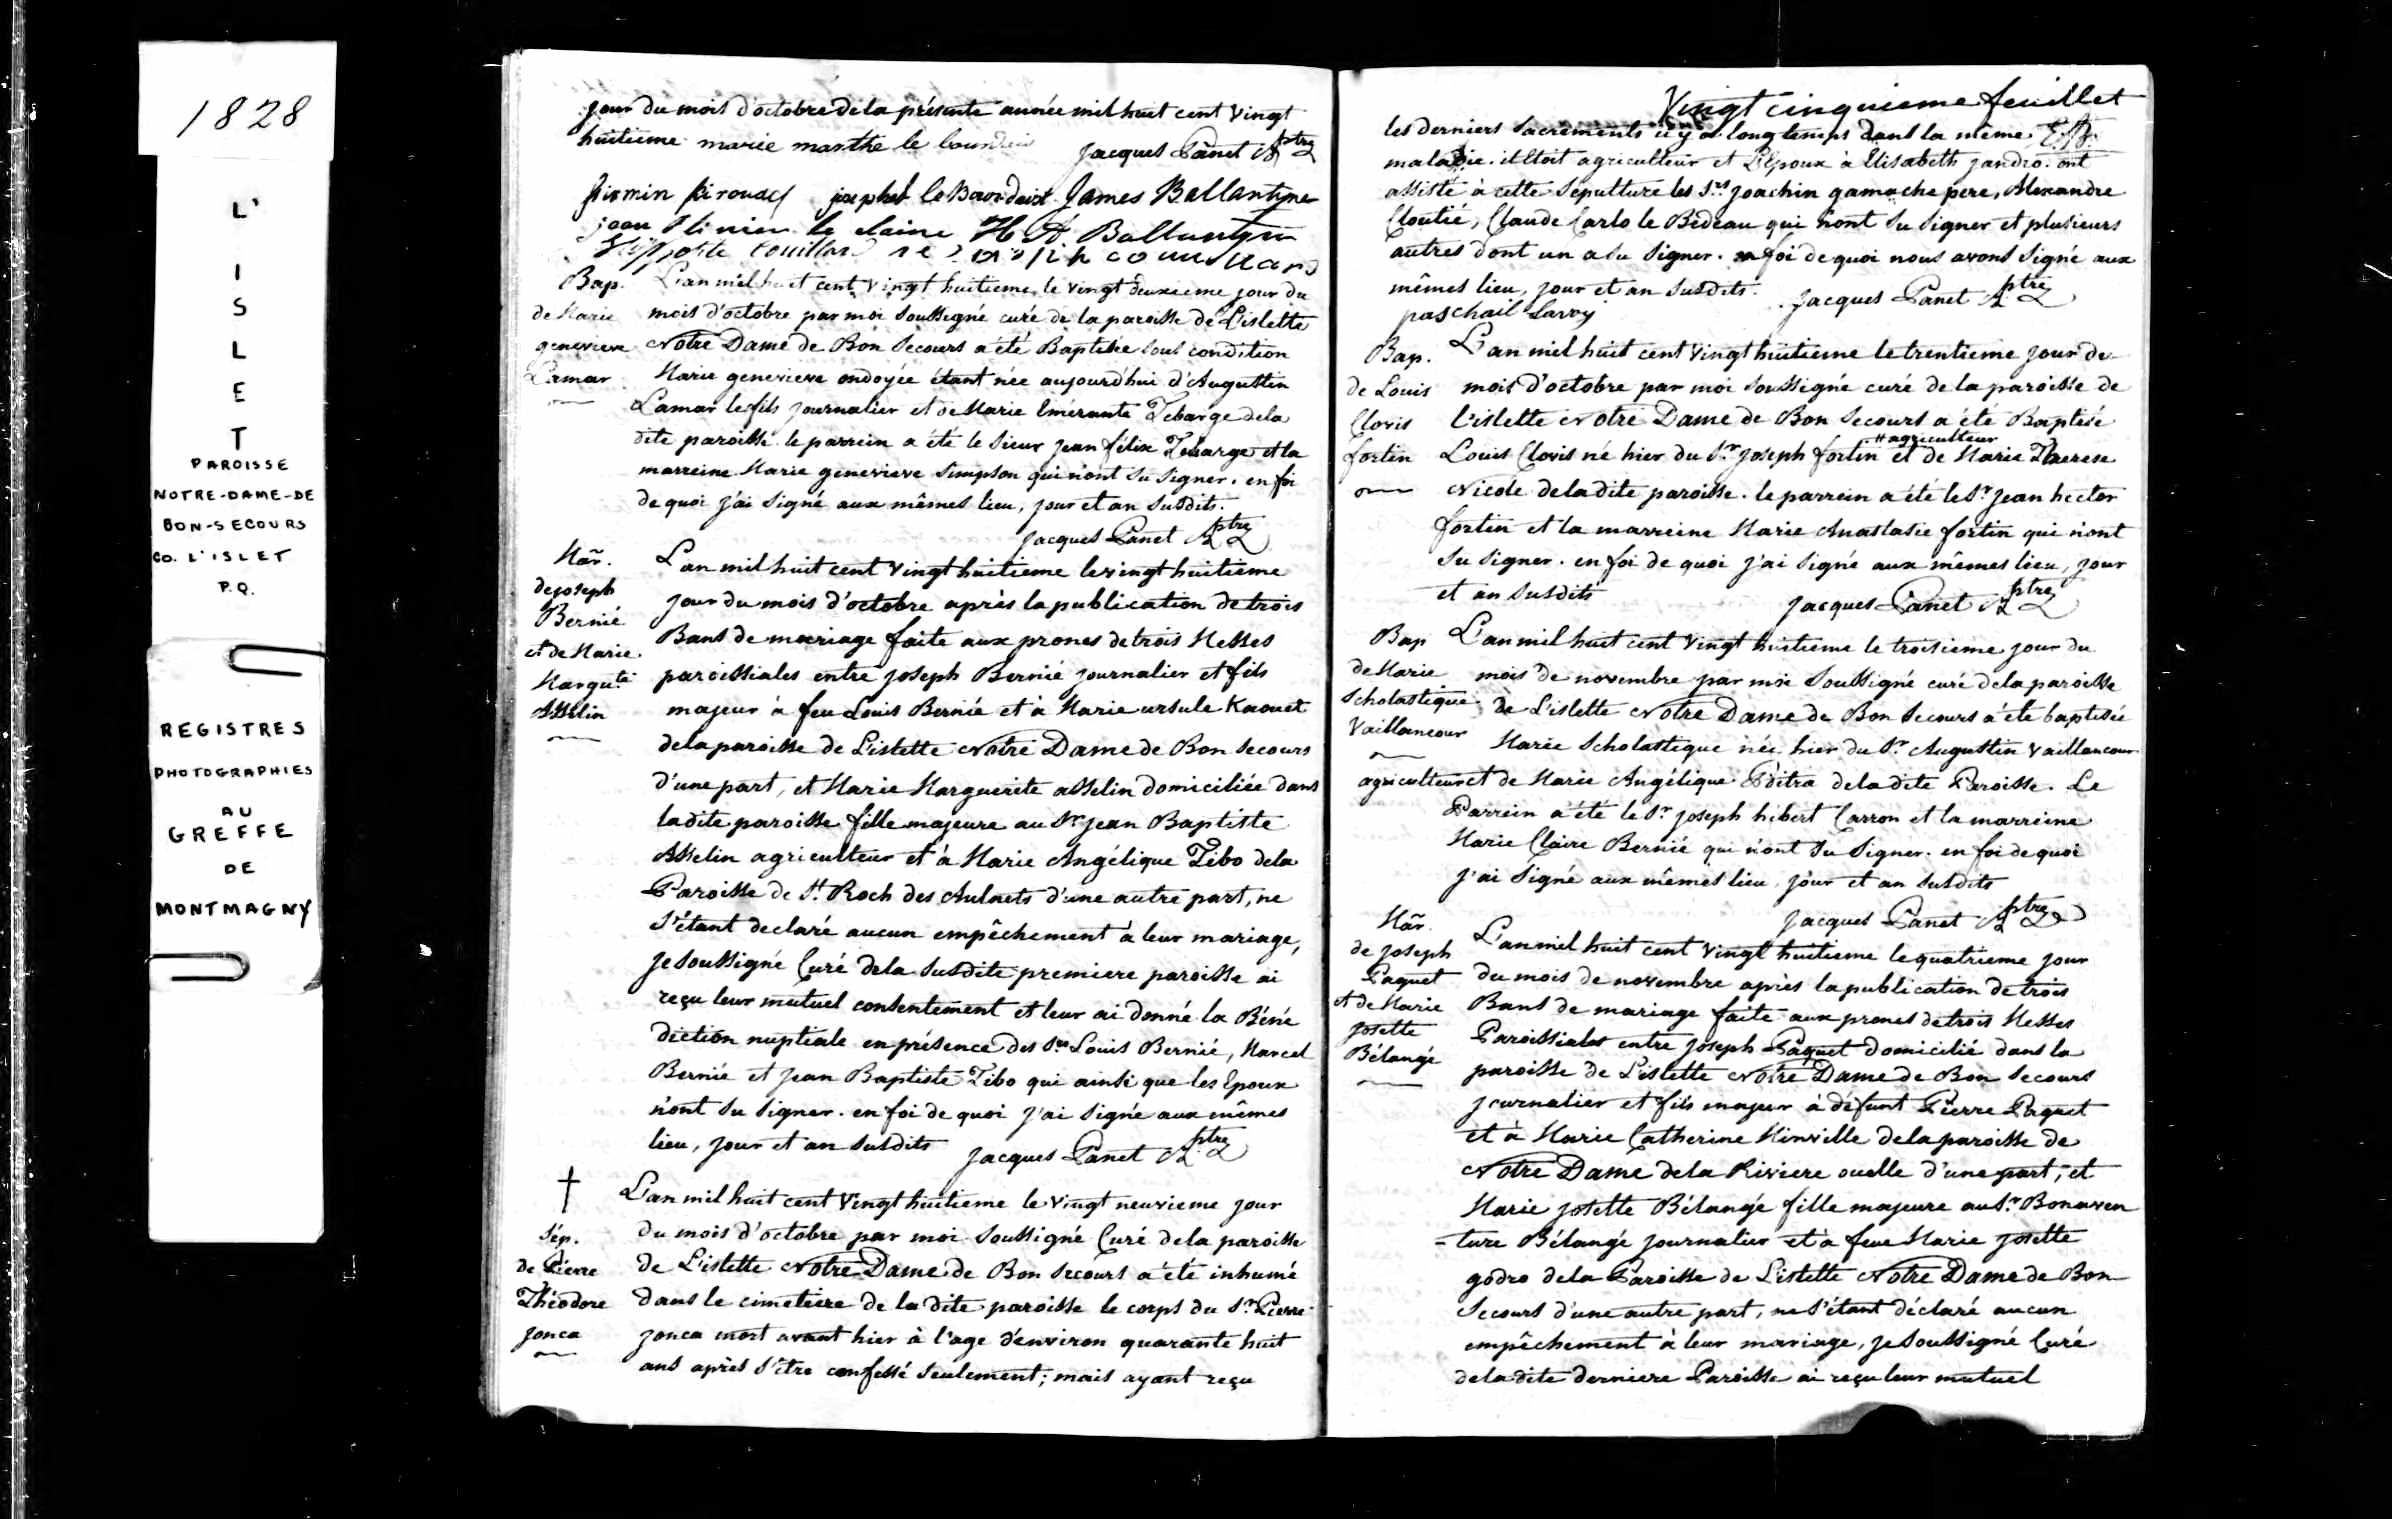 1828
L'
I
S
L
E
T
PAROISSE
NOTRE-DAME-DE
BON-SECOURS
CO. L'ISLET
P.Q.
REGISTRES
PHOTOGRAPHIES
AU
GREFFE
DE
MONTMAGNY
jour du mois d'octobre de la présente année mil huit cent vingt
huitieme marie marthe le bourdai
Jacques Panet ptre
firmin pirouet josephet le Bourdais James Ballantyne
jean olivier le claire H A Ballantyne
couillard
Bap.
de Marie
genevieve
Lamar
L'an mil huit cent vingt huitieme le vingt deuxieme jour du
mois d'octobre par moi soussigné curé de la paroisse de L'islette
Notre Dame de Bon Secours a été Baptisée sous condition
Marie genevieve ondoyée étant née aujourd'hui d'Augustin
Lamar le fils journalier et de Marie Emérante Tebarge de la
dite paroisse. le parrein a été le Sieur jean félix Tebarge et la
marreine Marie genevieve Simpson qui n'ont su signer. en foi
de quoi j'ai signé aux mêmes lieu, jour et an susdits.
Jacques Panet ptre
Mar.
de joseph
Bernié
et de Marie
Margute
Asselin
L'an mil huit cent vingt huitieme le vingt huitieme
jour du mois d'octobre après la publication de trois
Bans de mariage faite aux prones de trois Messes
paroissiales entre joseph Bernié journalier et fils
majeur à feu Louis Bernié et à Marie ursule Kaouet
de la paroisse de L'islette Notre Dame de Bon Secours
d'une part, et Marie Marguerite asselin domiciliée dans
la dite paroisse fille majeure au Sr jean Baptiste
Asselin agriculteur et à Marie Angélique Tibo de la
Paroisse de St. Roch des Aulnets d'une autre part, ne
s'étant declaré aucun empêchement à leur mariage,
je soussigné Curé de la susdite premiere paroisse ai
reçu leur mutuel consentement et leur ai donné la Béné
diction nuptiale en présence des Srs Louis Bernié, Marcel
Bernié et jean Baptiste Tibo qui ainsi que les Epoux
n'ont su signer. en foi de quoi j'ai signé aux mêmes
lieu, jour et an susdits Jacques Panet ptre
†
Sép.
de Pierre
Théodore
jonca
L'an mil huit cent vingt huitieme le vingt neuvieme jour
du mois d'octobre par moi soussigné Curé de la paroisse
de L'islette Notre Dame de Bon Secours a été inhumé
dans le cimetiere de la dite paroisse le corps du Sr Pierre
jonca mort avant hier à l'age d'environ quarante huit
ans après s'être confessé seulement; mais ayant reçu
Vingt cinquieme feuillet
les derniers sacrements il y a longtemps dans la même
maladie. il étoit agriculteur et L'Epoux à Elisabeth jandro. ont
assisté à cette sépulture les Srs joachin gamache pere, Alexandre
Cloutié, Claude Carlo le Bedeau qui n'ont su signer et plusieurs
autres dont un a su signer. en foi de quoi nous avons signé aux
mêmes lieu, jour et an susdits.
Jacques Panet ptre
paschail Lavoy
Bap.
de Louis
Clovis
fortin
L'an mil huit cent vingt huitieme le trentieme jour de
mois d'octobre par moi soussigné curé de la paroisse de
L'islette Notre Dame de Bon Secours a été Baptisé
# agriculteur
Louis Clovis né hier du Sr joseph fortin et de Marie Therese
Nicole de la dite paroisse. le parrein a été le Sr jean hector
fortin et la marreine Marie Anastasie fortin qui n'ont
su signer. en foi de quoi j'ai signé aux mêmes lieu, jour
et an susdits
Jacques Panet ptre
Bap
de Marie
Scholastique
Vaillancour
L'an mil huit cent vingt huitieme le troisieme jour du
mois de novembre par moi soussigné curé de la paroisse
de L'islette Notre Dame de Bon Secours a été baptisée
Marie Scholastique née hier du Sr Augustin Vaillancour
agriculteur et de Marie Angélique Pditra de la dite Paroisse. Le
Parrein a été le Sr joseph hebert Carron et la marreine
Marie Claire Bernié qui n'ont su signer. en foi de quoi
j'ai signé aux mêmes lieu, jour et an susdits
Jacques Panet ptre
Mar.
de joseph
Paquet
et de Marie
josette
Bélangé
L'an mil huit cent vingt huitieme le quatrieme jour
du mois de novembre après la publication de trois
Bans de mariage faite aux prones de trois Messes
Paroissiales entre joseph Paquet domicilié dans la
paroisse de L'islette Notre Dame de Bon Secours
journalier et fils majeur à défunt Pierre Paquet
et à Marie Catherine Minville de la paroisse de
Notre Dame de la Riviere ouelle d'une part, et
Marie josette Bélangé fille majeure au Sr. Bonaven
-ture Bélangé journalier et à feue Marie josette
godro de la Paroisse de L'islette Notre Dame de Bon
Secours d'une autre part, ne s'étant déclaré aucun
empêchement à leur mariage, je soussigné Curé
de la dite derniere Paroisse ai reçu leur mutuel